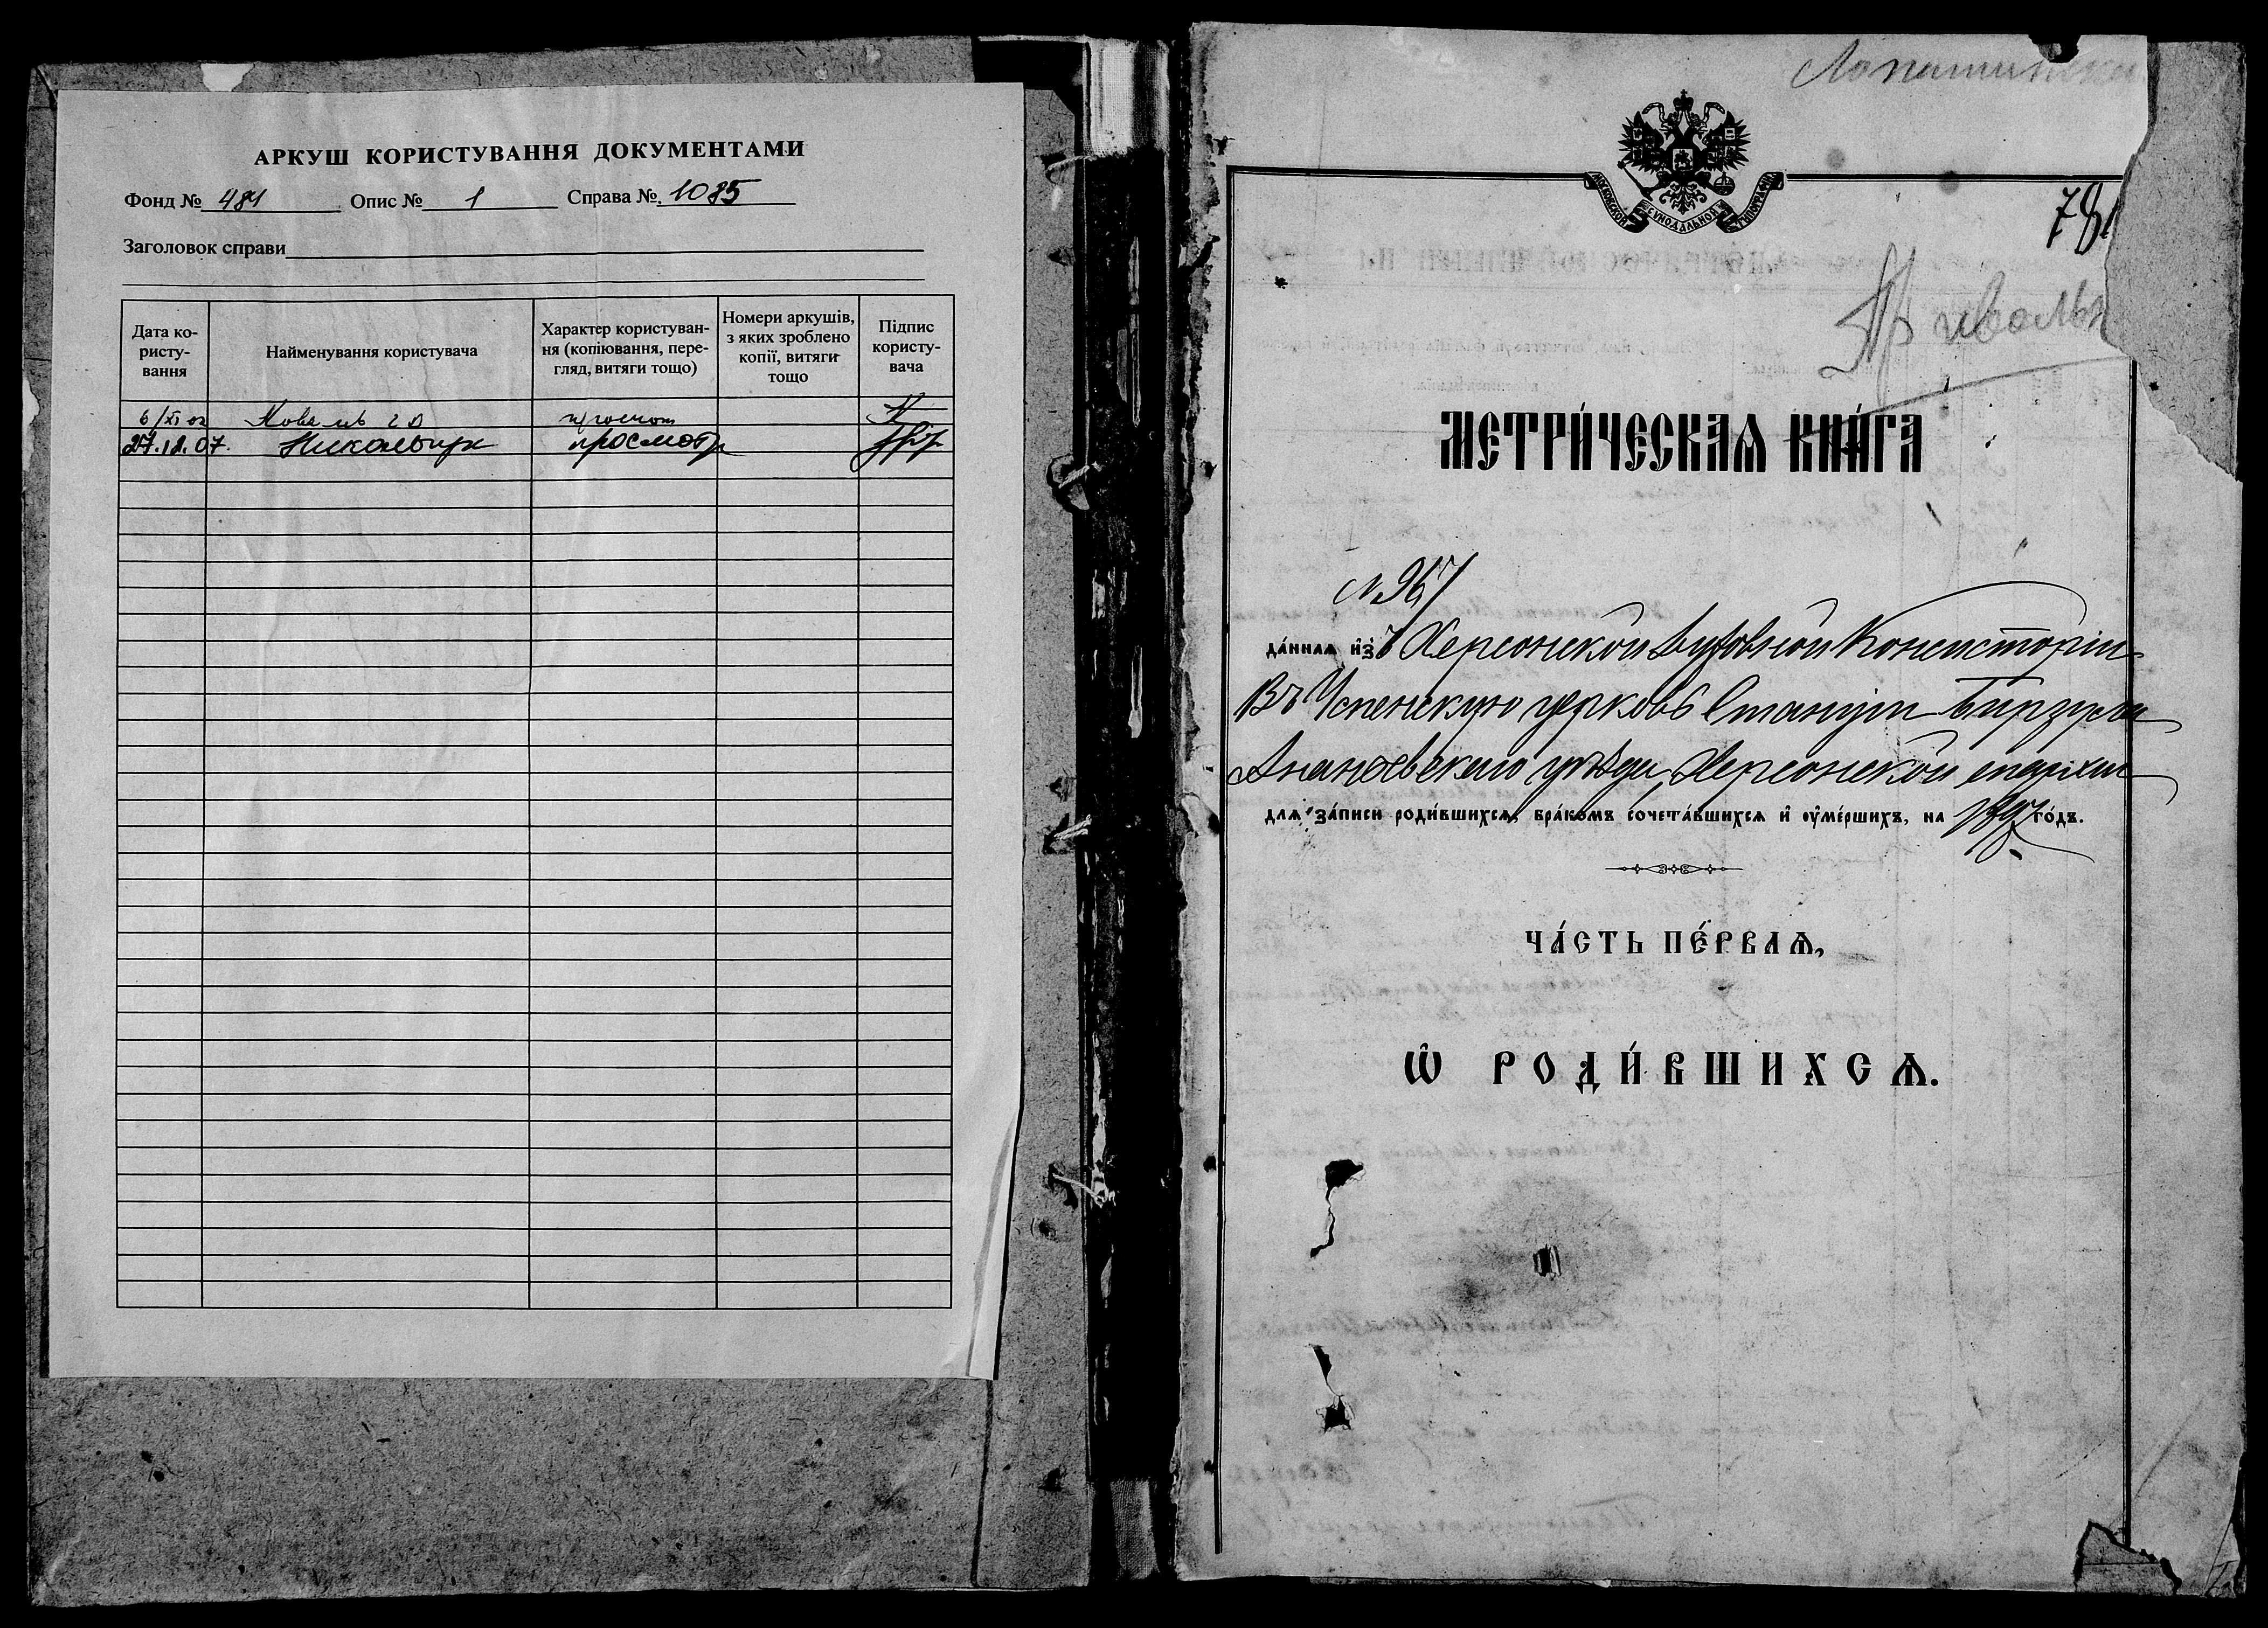 АРКУШ КОРИСТУВАННЯ ДОКУМЕНТАМИ
Фонд № 484 Опис № 1 Справа № 1085
Заголовок справи
Дата ко-
ристу-
вання
Найменування користувача
Характер користуван-
ня (копіювання, пере-
гляд, витяги тощо)
Номери аркушів,
з яких зроблено
копії, витяги
тощо
Підпис
користу-
вача
27.12.07. просмотр
МОСКОВСКОЙ СѴНОДАЛЬНОЙ ТИПОГРАФІИ
78
Привольн
МЕТРИ́ЧЕСКАѦ КНИ́ГА
№ 967
да́ннаѧ и҆зъ Херсонской Духовной Консисторіи
Въ Успенскую церковь Станціи Бирзула
Ананьевскаго уѣзда, Херсонской епархіи
длѧ за́писи роди́вшихсѧ, бра́комъ сочета́вшихсѧ и҆ ᲂу҆ме́ршихъ, на 1897 го́дъ.
ЧА́СТЬ ПЕ́РВАѦ,
Ѽ РОДИ́ВШИХСѦ.